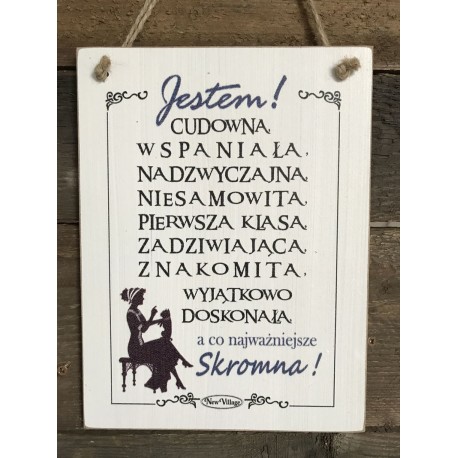 Jestem!
CUDOWNA,
WSPANIAŁA,
NADZWYCZAJNA,
NIESAMOWITA,
PIERWSZA KLASA,
ZADZIWIAJĄCA,
ZNAKOMITA,
WYJĄTKOWO
DOSKONAŁA,
a co najważniejsze
Skromna!
New Village